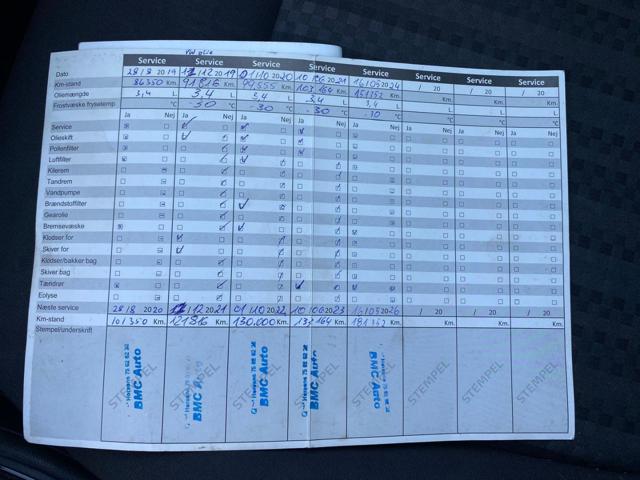 VW olie
Service Service Service Service Service Service Service Service
Dato 28/8 2019 12/12 2019 01/10 2020 10/06 2021 16/05 2024 / 20 / 20 / 20
Km-stand 86350 Km. 91.816 Km. 99.555 Km. 103 164 Km. 151352 Km. Km. Km. Km.
Oliemængde 3,4 L 3,4 L 3,4 L 3,4 L 3,4 L L L L
Frostvæske frysetemp. °C -30 °C -30 °C -30 °C -30 °C °C °C °C
Ja Nej Ja Nej Ja Nej Ja Nej Ja Nej Ja Nej Ja Nej Ja Nej
Service
Olieskift
Pollenfilter
Luftfilter
Kilerem
Tandrem
Vandpumpe
Brændstoffilter
Gearolie
Bremsevæske
Klodser for
Skiver for
Klodser/bakker bag
Skiver bag
Tændrør
Eolyse
Næste service 28/8 2020 12/12 2021 01/10 2022 10/06 2023 16/05 2026 / 20 / 20 / 20
Km-stand 101350 Km. 121816 Km. 130.000 Km. 133 164 Km. 181352 Km. Km. Km. Km.
Stempel/underskrift
STEMPEL STEMPEL STEMPEL STEMPEL STEMPEL STEMPEL STEMPEL STEMPEL
BMC Auto BMC Auto BMC Auto BMC Auto BMC Auto